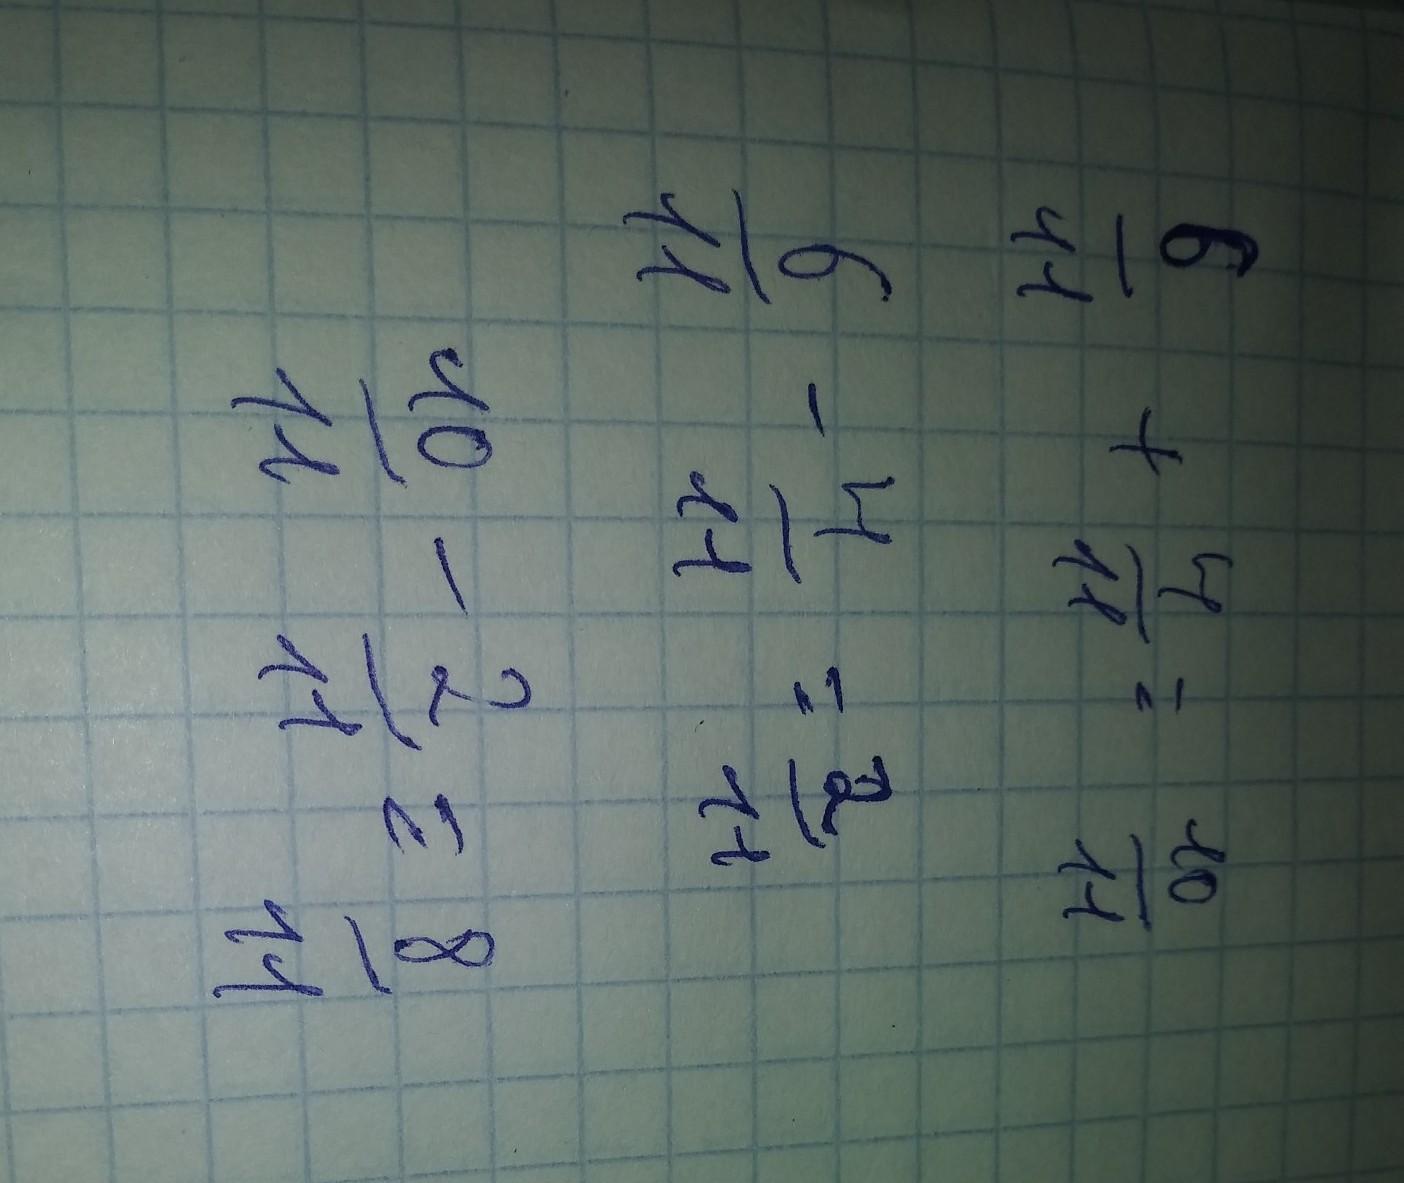 6/11 + 4/11 = 10/11
6/11 - 4/11 = 2/11
10/11 - 2/11 = 8/11